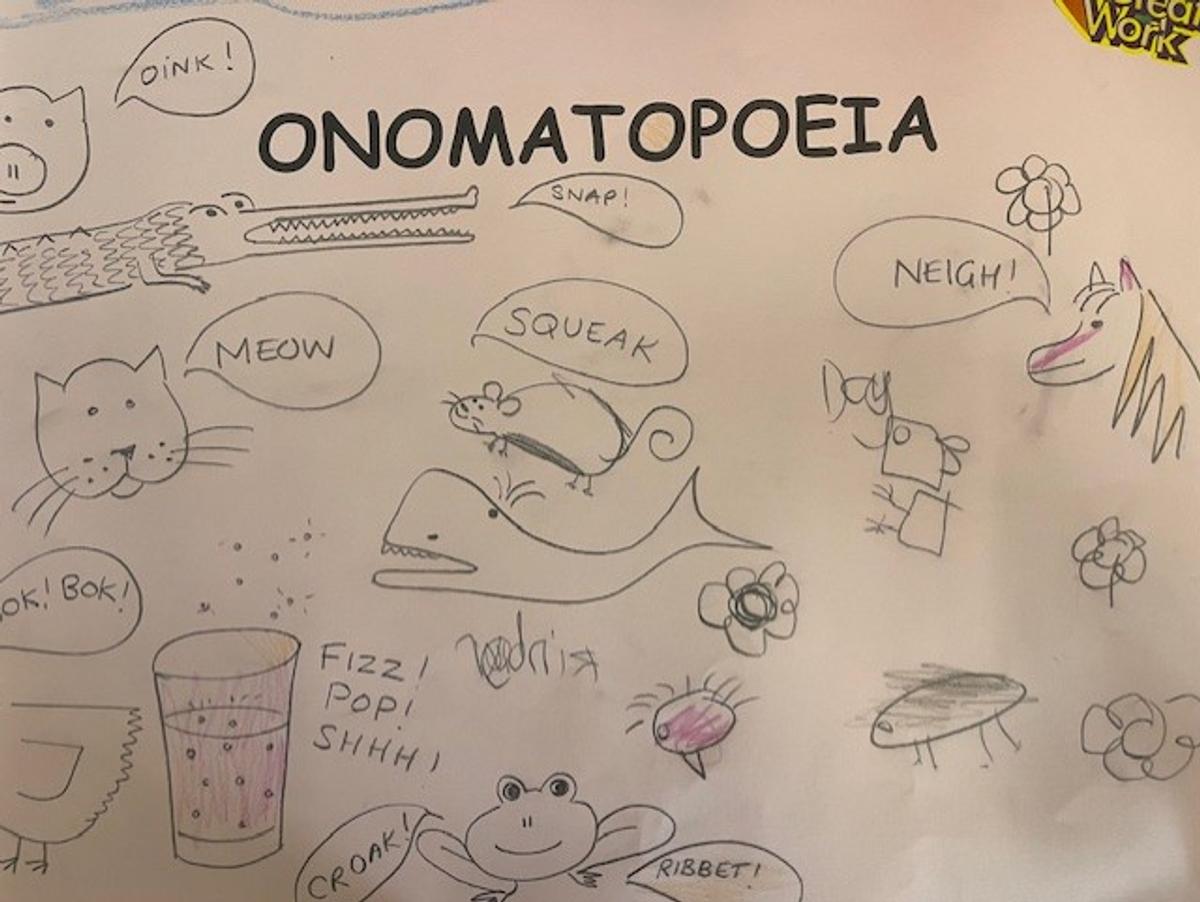 Work
OiNK!
ONOMATOPOEIA
SNAP!
NEIGH!
MEOW
SQUEAK
Dog
BOK!
FIZZ!
POP!
SHHH!
CROAK!
RIBBET!